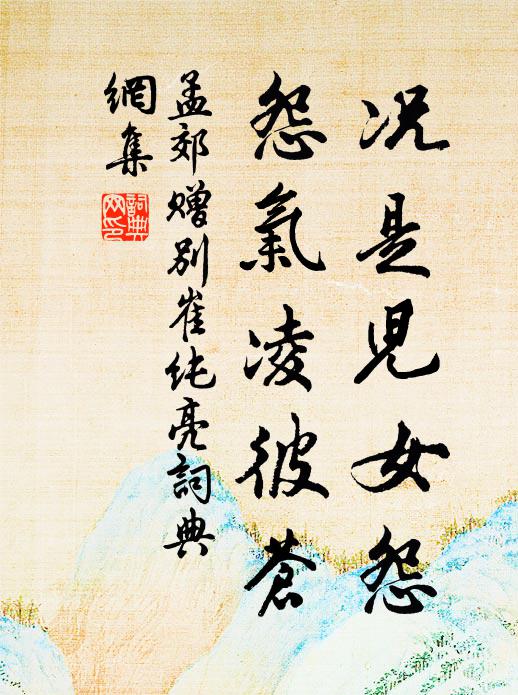 况是兒女怨
怨氣凌彼蒼
孟郊贈別崔纯亮詞典
網集
詞典
网印